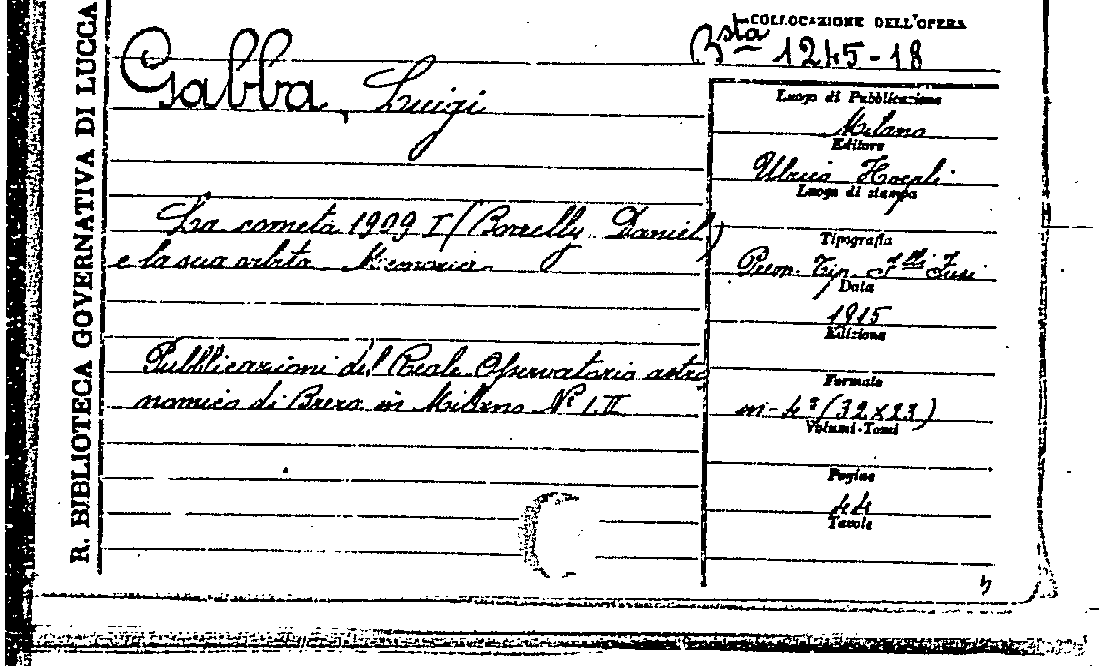 R. BIBLIOTECA GOVERNATIVA DI LUCCA
COLLOCAZIONE DELL'OPERA
Bsta 1245-18
Gabba, Luigi
La cometa 1909 I (Borrelly Daniel)
e la sua orbita. Memoria.
Pubblicazioni del Reale Osservatorio astro
nomico di Brera in Milano N°
Luogo di Pubblicazione
Milano
Editore
Ulrico Hoepli
Luogo di stampa
Tipografia
Prem. Tip. Flli Fusi
Data
1915
Edizione
Formato
in-4° (32x23)
Volumi-Tomi
Pagine
44
Tavole